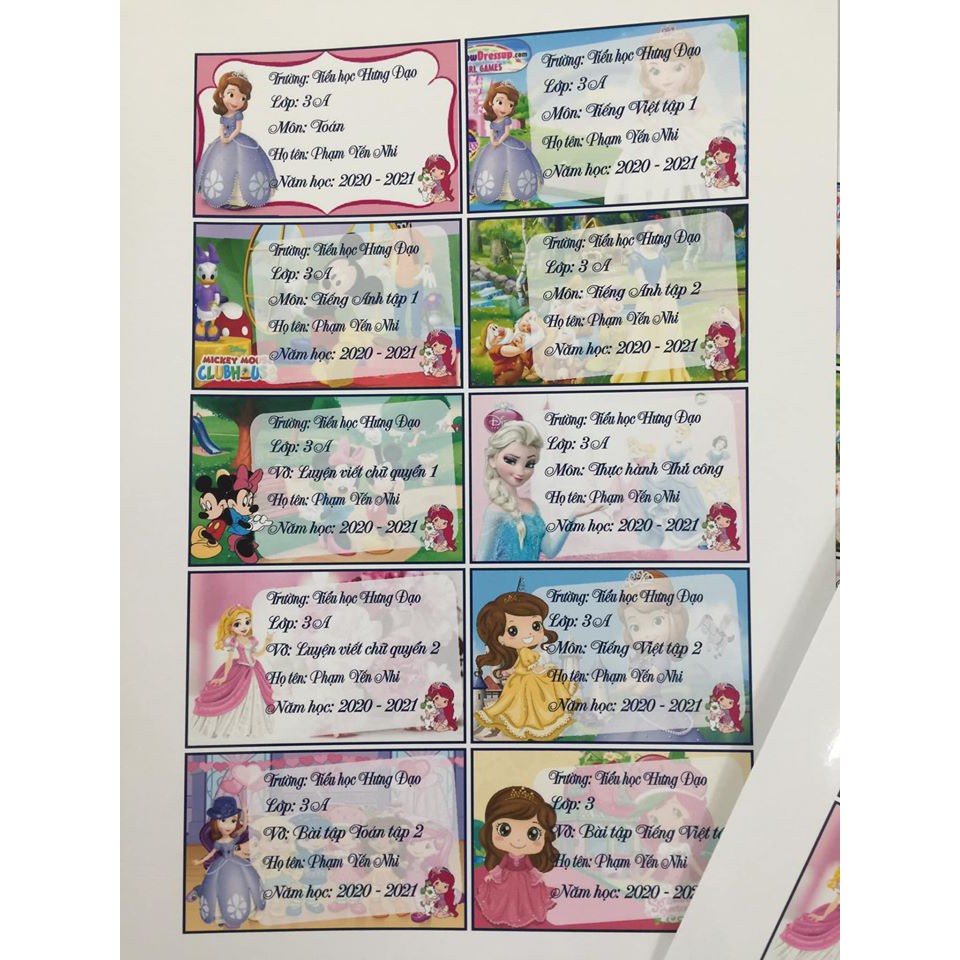 Trường: Tiểu học Hưng Đạo
Lớp: 3A
Môn: Toán
Họ tên: Phạm Yến Nhi
Năm học: 2020 - 2021
owDressup.com
RL GAMES
Trường: Tiểu học Hưng Đạo
Lớp: 3A
Môn: Tiếng Việt tập 1
Họ tên: Phạm Yến Nhi
Năm học: 2020 - 2021
Trường: Tiểu học Hưng Đạo
Lớp: 3A
Môn: Tiếng Anh tập 1
Họ tên: Phạm Yến Nhi
Năm học: 2020 - 2021
MICKEY MOU
CLUBHOUS
Trường: Tiểu học Hưng Đạo
Lớp: 3A
Môn: Tiếng Anh tập 2
Họ tên: Phạm Yến Nhi
Năm học: 2020 - 2021
Trường: Tiểu học Hưng Đạo
Lớp: 3A
Vở: Luyện viết chữ quyển 1
Họ tên: Phạm Yến Nhi
Năm học: 2020 - 2021
Trường: Tiểu học Hưng Đạo
Lớp: 3A
Môn: Thực hành Thủ công
Họ tên: Phạm Yến Nhi
Năm học: 2020 - 2021
Trường: Tiểu học Hưng Đạo
Lớp: 3A
Vở: Luyện viết chữ quyển 2
Họ tên: Phạm Yến Nhi
Năm học: 2020 - 2021
Trường: Tiểu học Hưng Đạo
Lớp: 3A
Môn: Tiếng Việt tập 2
Họ tên: Phạm Yến Nhi
Năm học: 2020 - 2021
Trường: Tiểu học Hưng Đạo
Lớp: 3A
Vở: Bài tập Toán tập 2
Họ tên: Phạm Yến Nhi
Năm học: 2020 - 2021
Trường: Tiểu học Hưng Đạo
Lớp: 3
Vở: Bài tập Tiếng Việt
Họ tên: Phạm Yến Nhi
Năm học: 2020 - 202